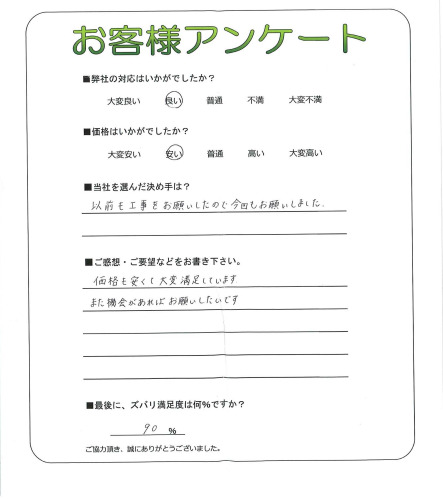 お客様アンケート
■弊社の対応はいかがでしたか？
大変良い 良い 普通 不満 大変不満
■価格はいかがでしたか？
大変安い 安い 普通 高い 大変高い
■当社を選んだ決め手は？
以前も工事をお願いしたので今回もお願いしました.
■ご感想・ご要望などをお書き下さい。
価格も安くて大変満足しています
また機会があればお願いしたいです
■最後に、ズバリ満足度は何％ですか？
90 %
ご協力頂き、誠にありがとうございました。